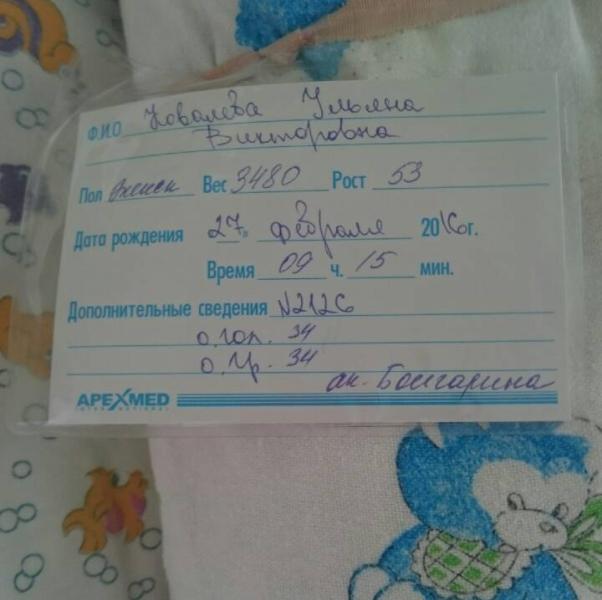 Ф.И.О Ковалева Ульяна
Викторовна
Пол женск Вес 3480 Рост 53
Дата рождения 27 февраля 2016г.
Время 09 ч. 15 мин.
Дополнительные сведения N2126
о. гол. 34
о. гр. 34
ак. Болгарина
APEXMED
INTERNATIONAL